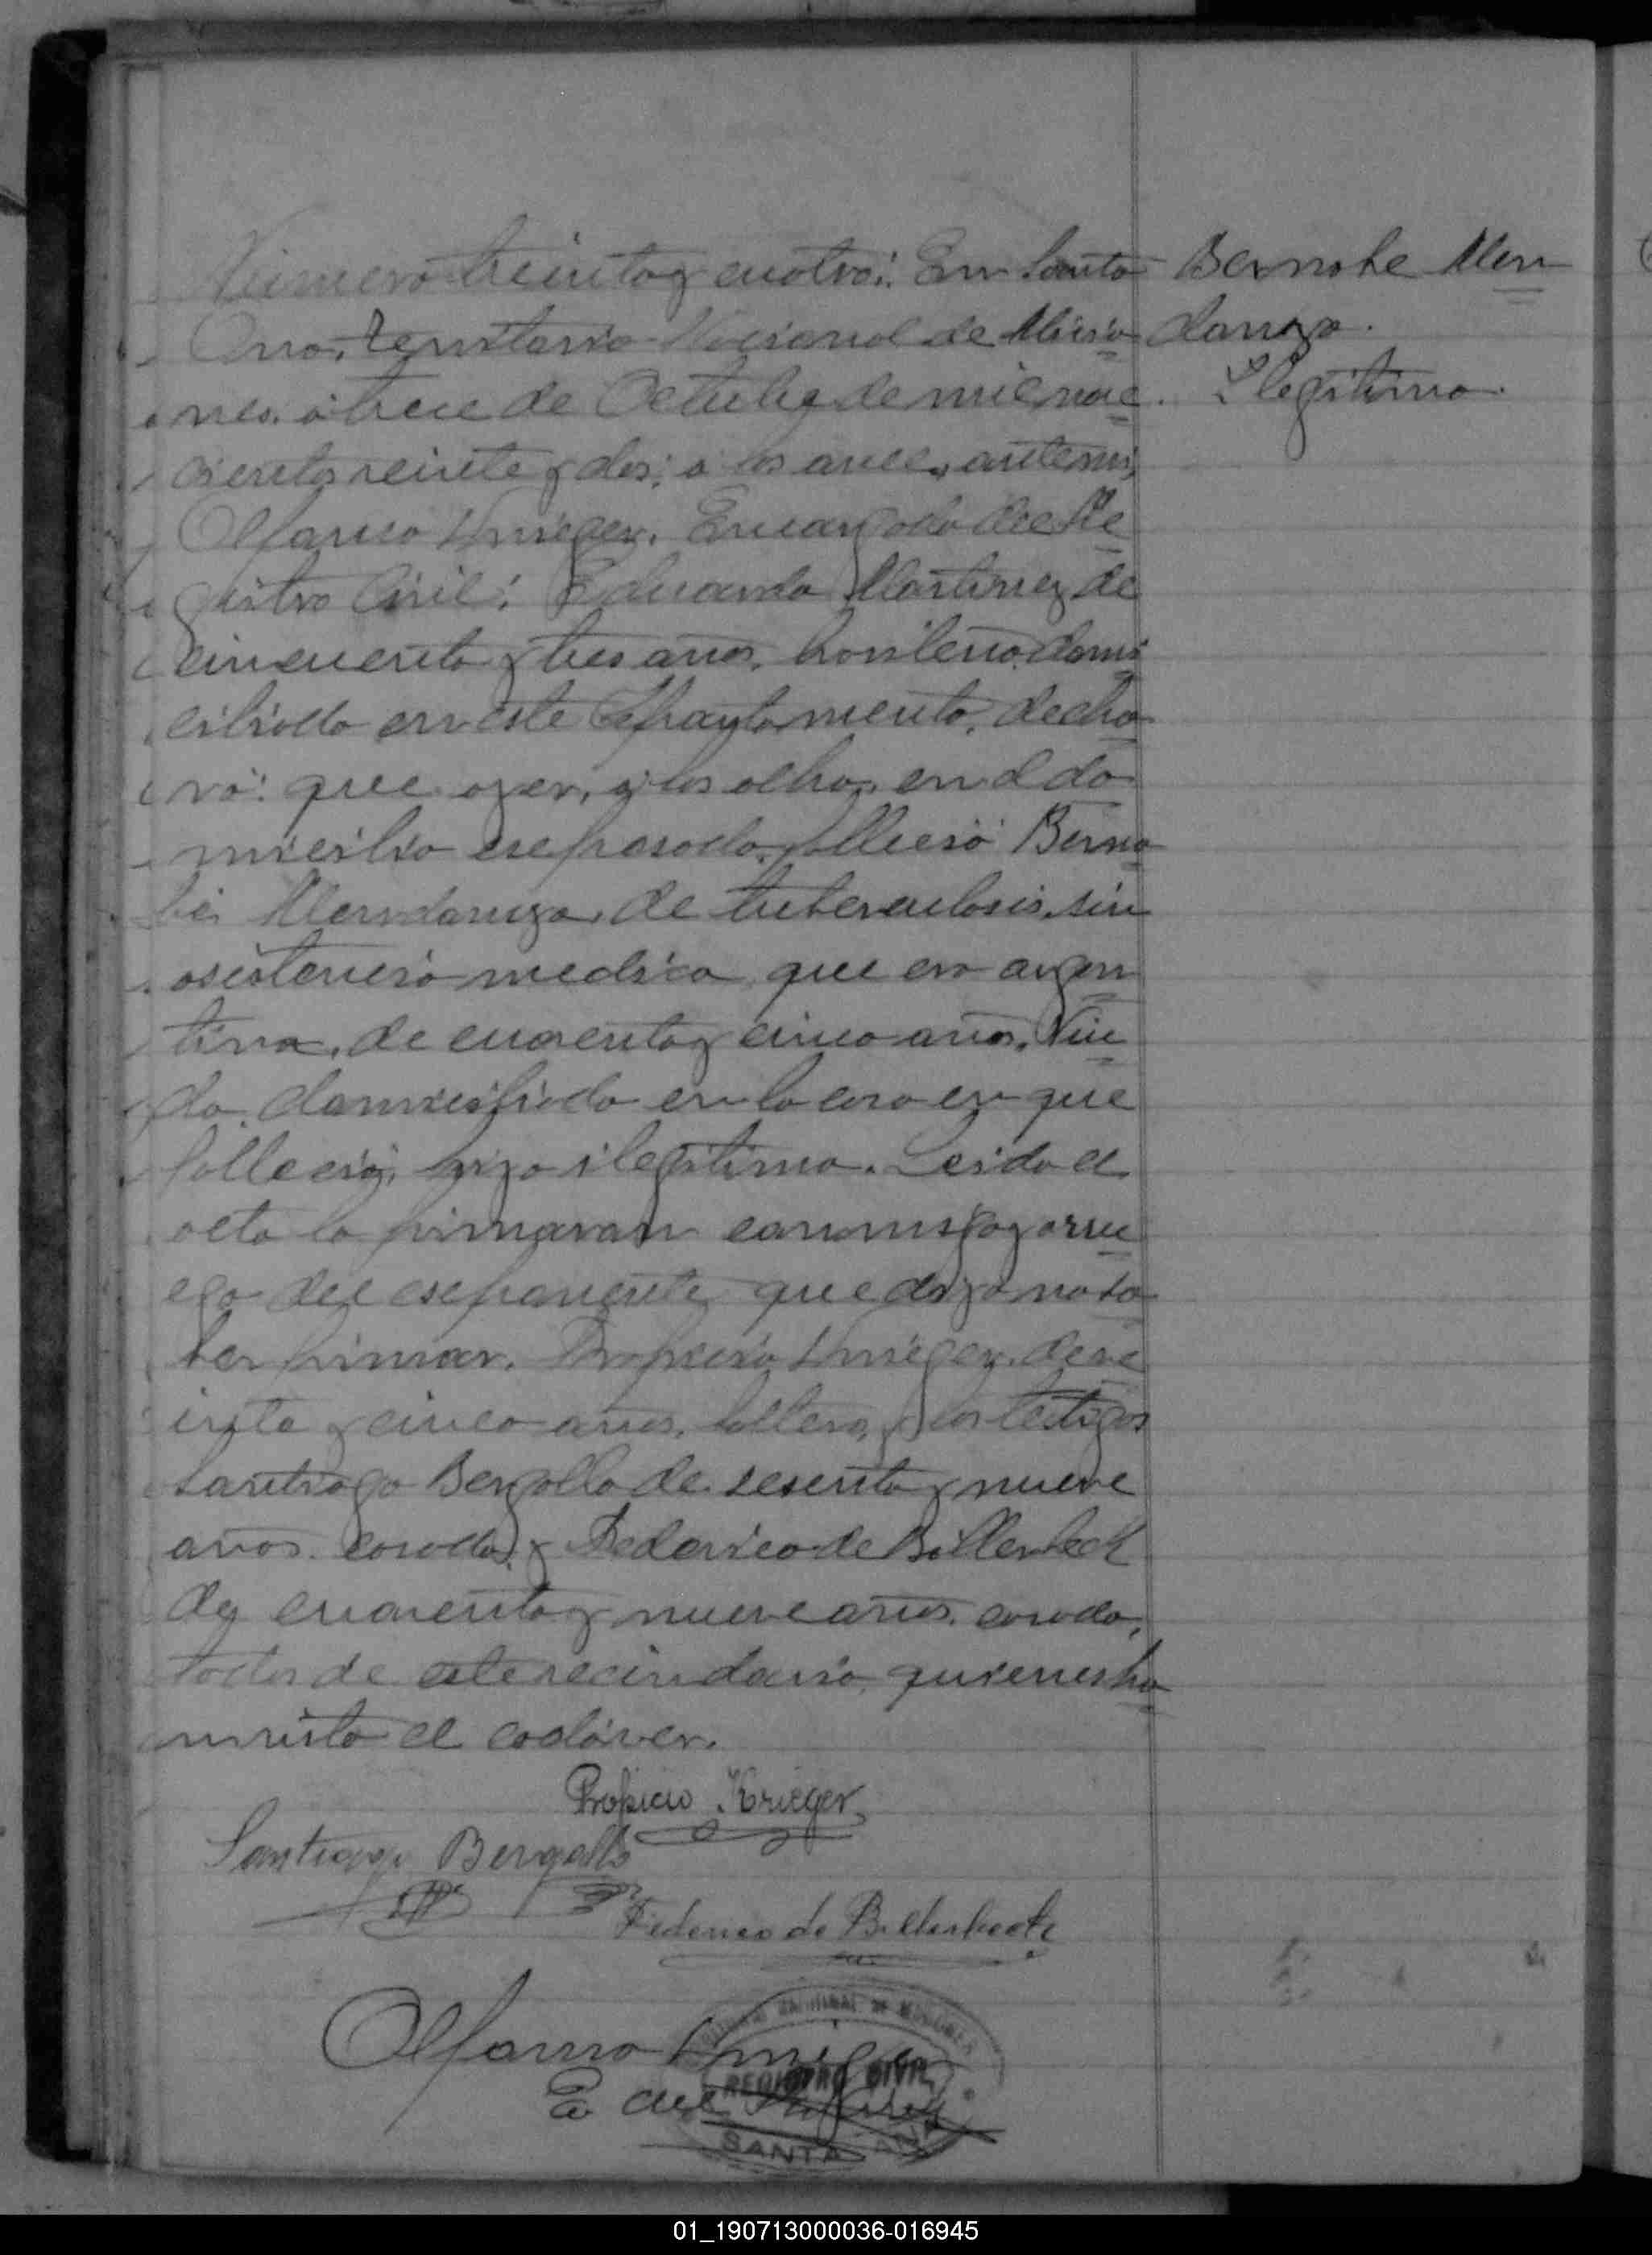 Bernabe Men
danza.
Ilegitimo.
Numero treinta y cuatro: En Santa
Ana, territorio Nacional de Misio
nes, a trece de Octubre de mil nove
cientos veinte y dos, a las once, ante mi,
Krieger, Encargado del Re
gistro Civil: Eduardo Martinez de
cincuenta y tres años, domi
ciliado en este decla
ró: que ayer, a las ocho, en el do
micilio espresado, falleció Berna
bé Mendanza, de tuberculosis, sin
asistencia medica, que era argen
tino, de cuarenta y cinco años, Viu
do, domiciliado en la casa en que
falleció, hijo ilegitimo. Leida el
acta la firmaron conmigo, y a rue
go del esponente que dijo no sa
ber firmar, Propicio Krieger, de ve
inte y cinco años, soltero, y los testigos
Santiago Bergallo de sesenta y nueve
años, casado, y Federico de Billerbeck
de cuarenta y nueve años, casado,
todos de este vecindario, quienes ha
n visto el cadáver.
Propicio Krieger
Santiago Bergallo
Federico de Billerbeck
Krieger
E. del
REGISTRO CIVIL
SANTA ANA
01_190713000036-016945